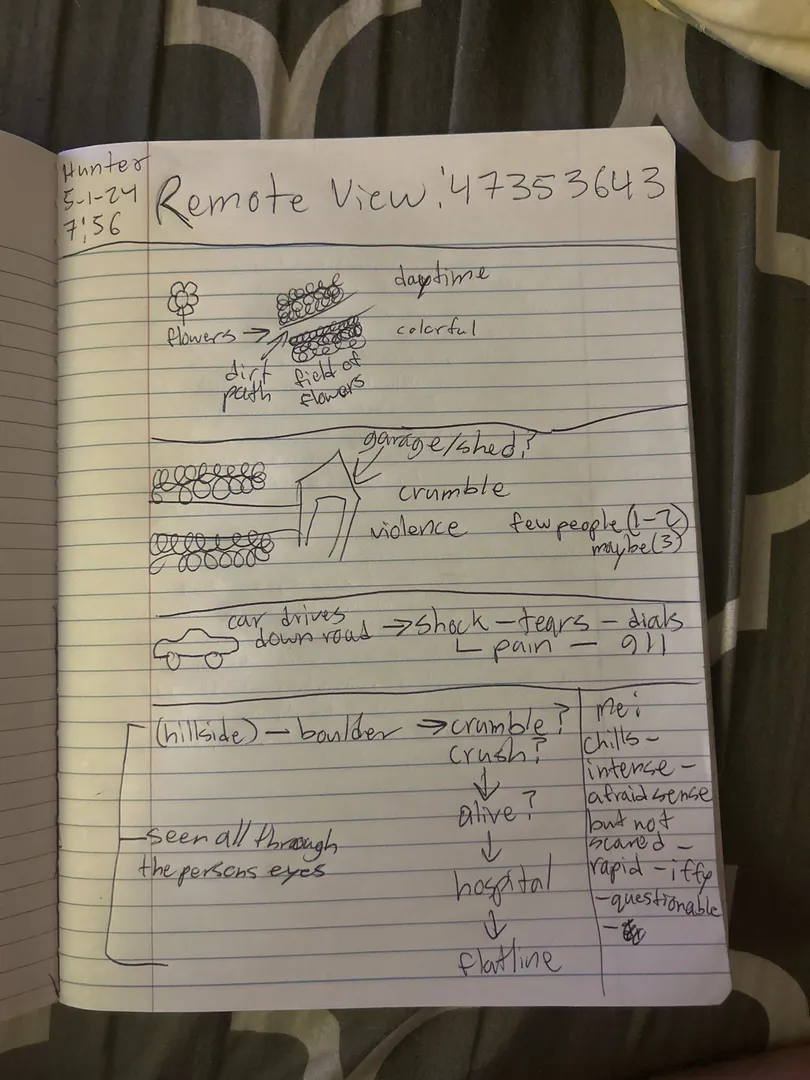 Hunter
5-1-24
7:56
Remote View: 47353643
daytime
flowers →
colorful
dirt
path
field of
flowers
garage/shed?
crumble
violence
few people (1-2)
maybe (3)
car drives
down road
→ shock – tears – dials
└ pain – 911
(hillside) – boulder → crumble?
crush?
↓
alive?
↓
hospital
↓
flatline
– seen all through
the persons eyes
Me:
chills –
intense –
afraid sense
but not
scared –
rapid – iffy
– questionable
–